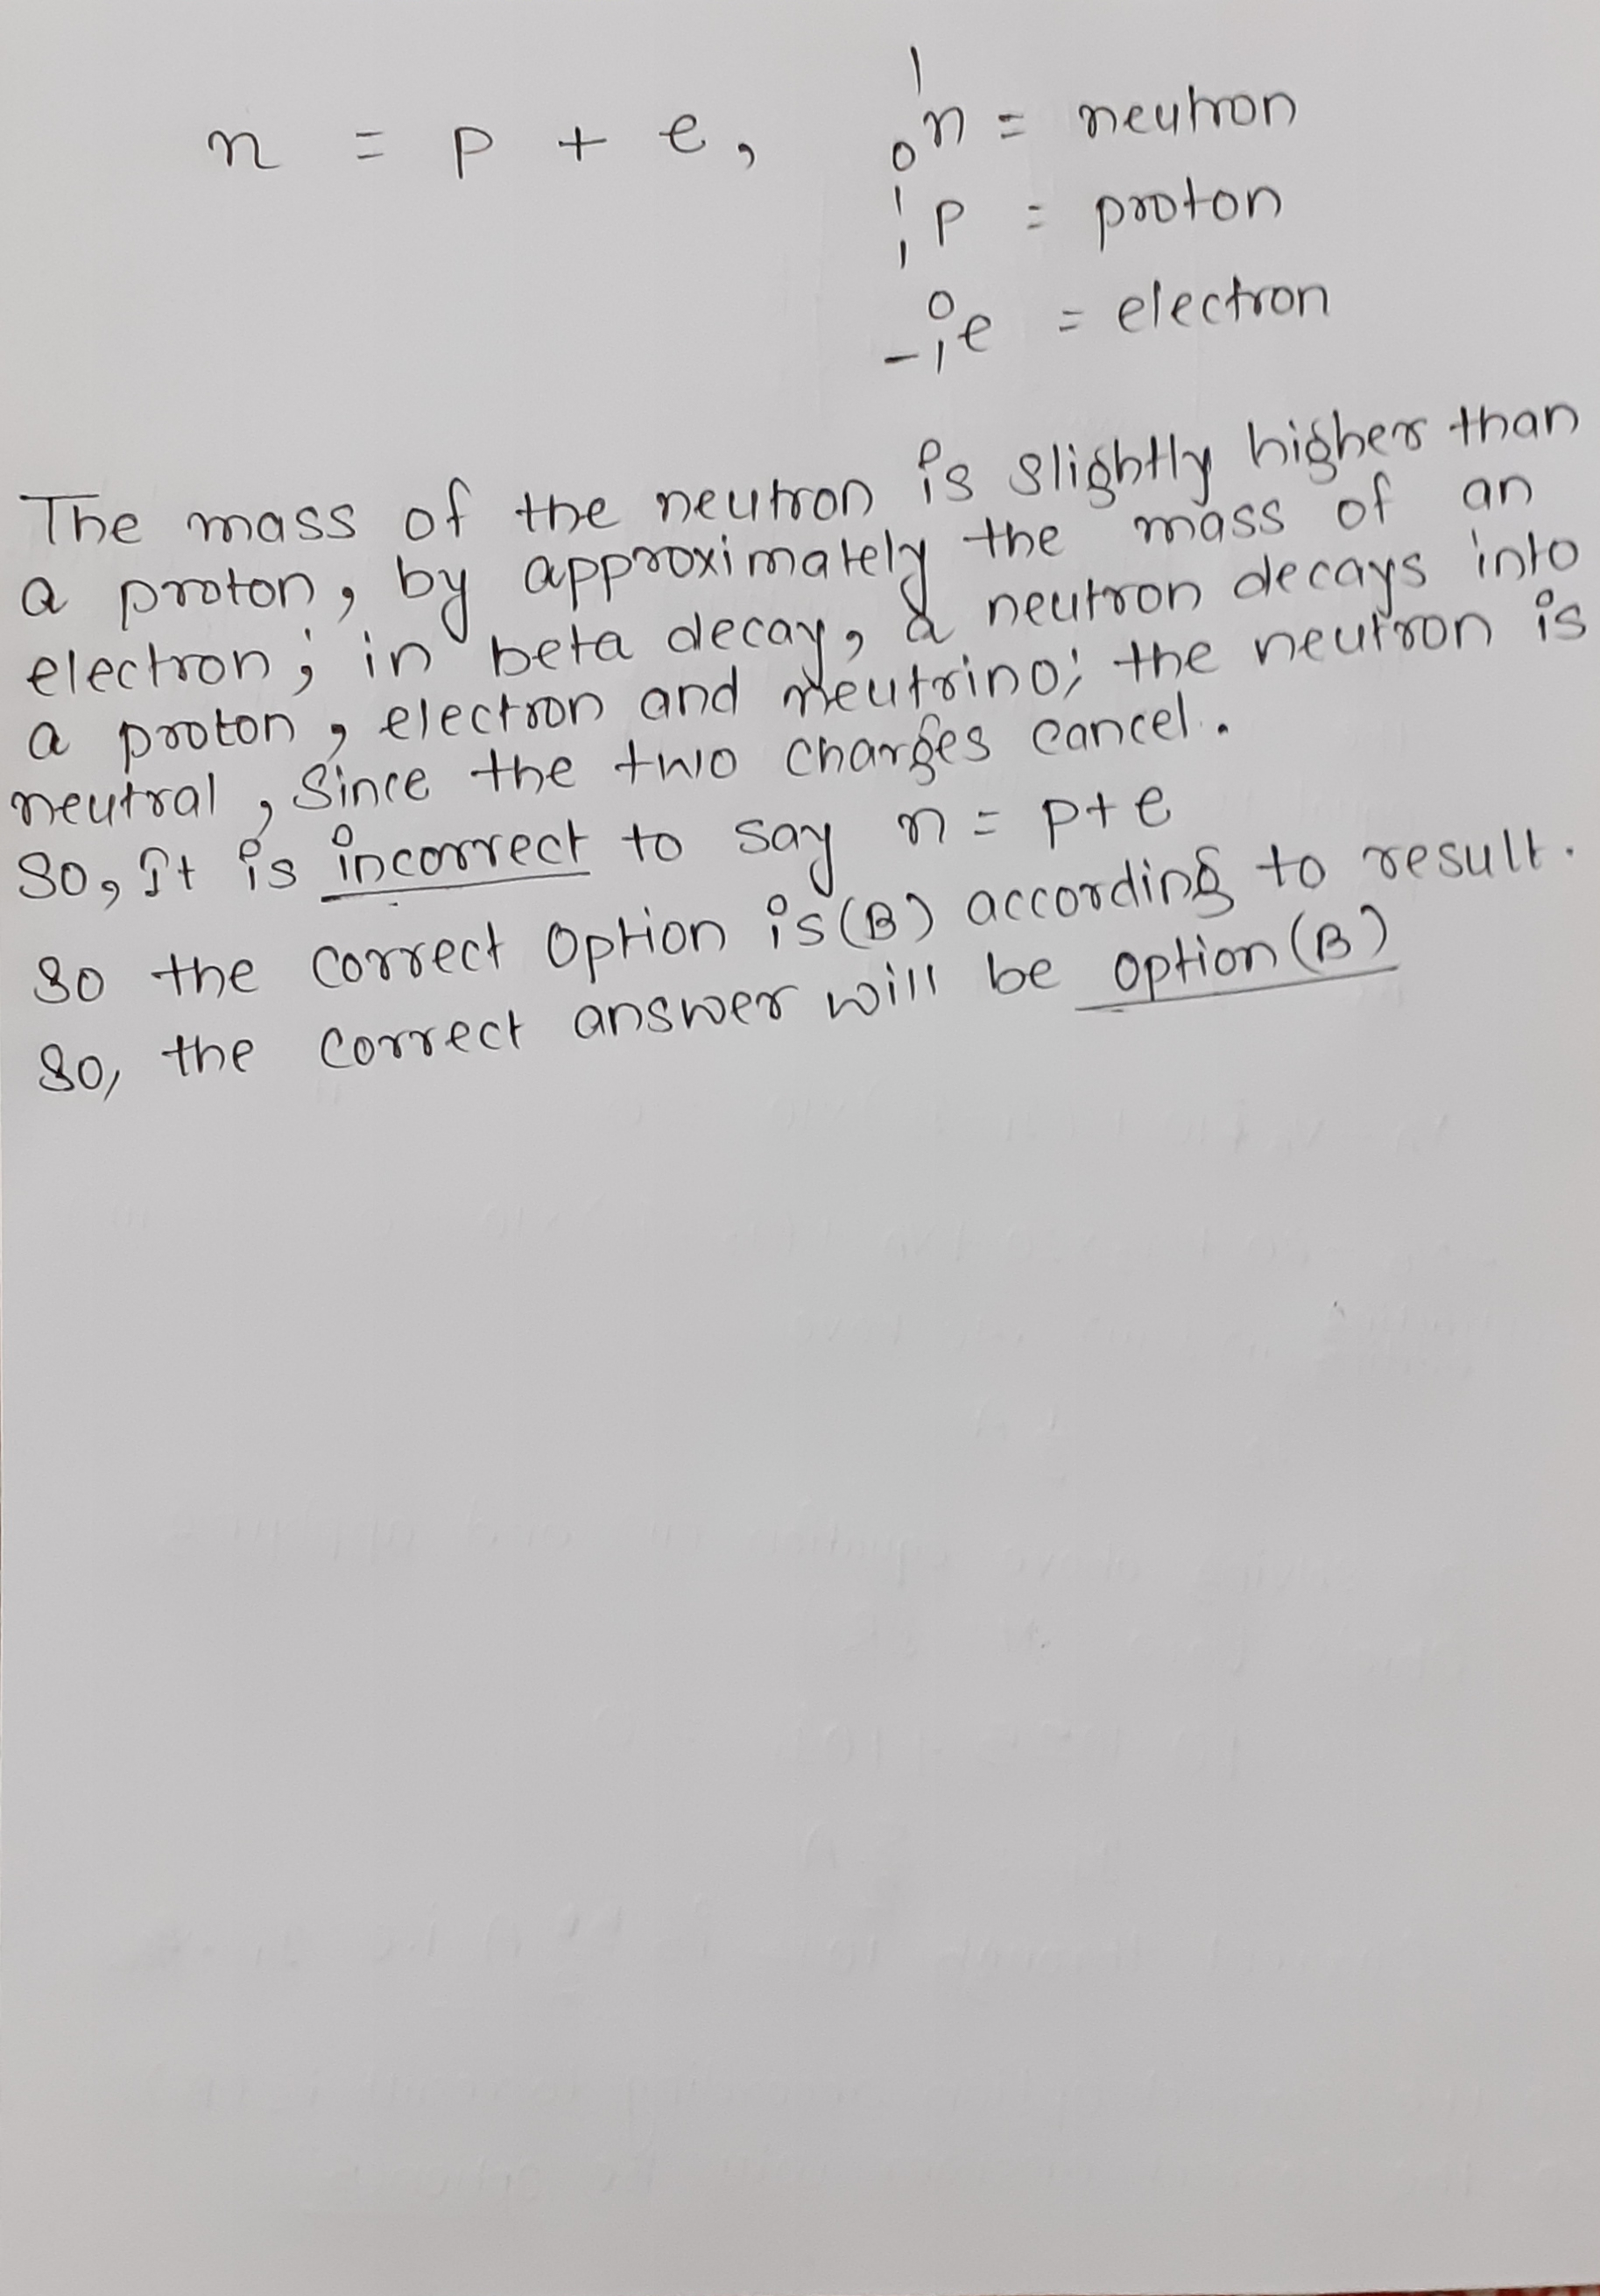 n = p + e, ¹₀n = neutron
¹₁p = proton
⁰₋₁e = electron
The mass of the neutron is slightly higher than
a proton, by approximately the mass of an
electron; in beta decay, a neutron decays into
a proton, electron and neutrino; the neutron is
neutral, Since the two charges cancel.
So, It is incorrect to say n = p+e
So the correct option is (B) according to result.
So, the correct answer will be option (B)